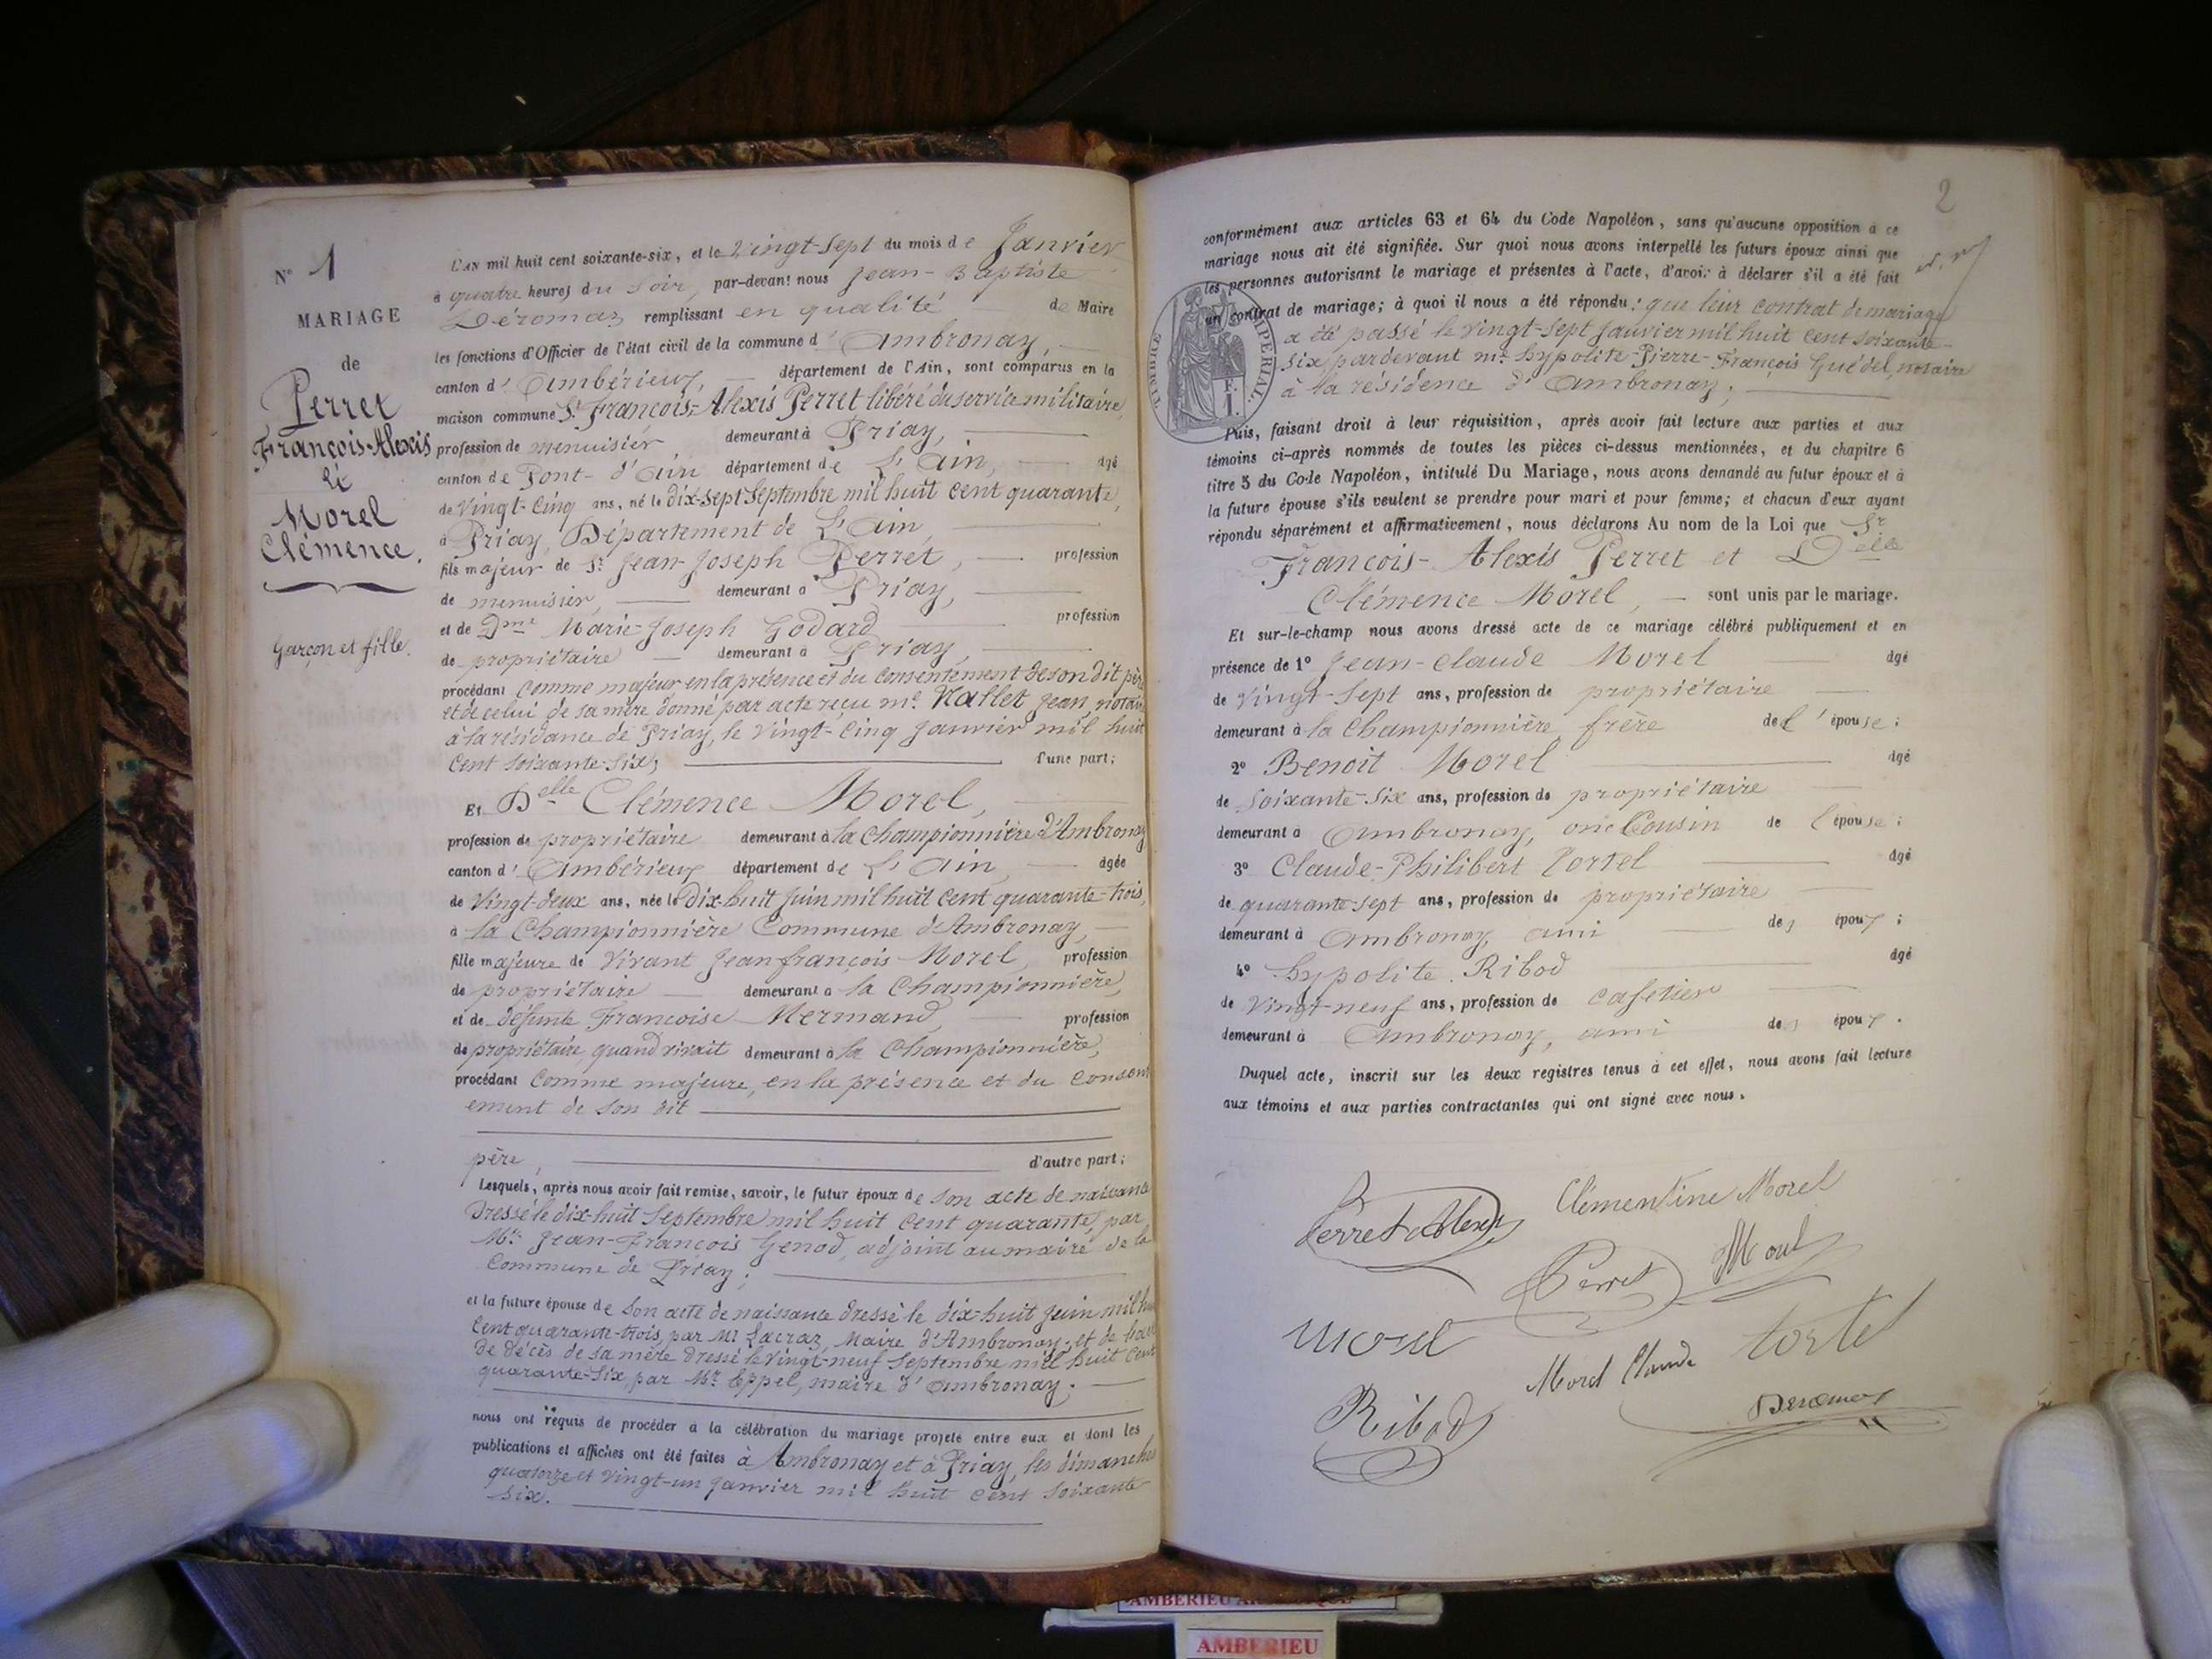 N° 1
MARIAGE
de
Perret
François-Alexis
et
Morel
Clémence.
Garçon et fille.
L'AN mil huit cent soixante-six, et le Vingt-Sept du mois de Janvier
à quatre heures du Soir, par-devant nous Jean-Baptiste
Déromas remplissant en qualité de Maire
les fonctions d'Officier de l'état civil de la commune d'Ambronay,
canton d'Ambérieux, département de l'Ain, sont comparus en la
maison commune Sr. François-Alexis Perret libéré du service militaire,
profession de menuisier demeurant à Priay,
canton de Pont-d'Ain département de L'Ain, âgé
de Vingt-Cinq ans, né le dix-sept Septembre mil huit cent quarante,
à Priay, Département de L'Ain,
fils majeur de Sr. Jean-Joseph Perret, profession
de menuisier, demeurant à Priay,
et de Dme Marie-Joseph Godard profession
de propriétaire demeurant à Priay,
procédant comme majeur en la présence et du consentement de son dit père
et de celui de sa mère donné par acte reçu me. Nallet Jean, notaire
à la résidance de Priay, le Vingt-Cinq Janvier mil huit
Cent soixante-six; d'une part;
Et Delle Clémence Morel,
profession de propriétaire demeurant à la Championnière d'Ambronay
canton d'Ambérieux département de L'Ain, âgée
de Vingt-deux ans, née le Dix-huit Juin mil huit cent quarante-trois,
à la Championnière Commune d'Ambronay,
fille majeure de Vivant Jean françois Morel, profession
de propriétaire demeurant à la Championnière,
et de défunte Francoise Mermand, profession
de propriétaire, quand vivait demeurant à la Championnière,
procédant Comme majeure, en la présence et du Consent
ement de son dit
père, d'autre part;
Lesquels, après nous avoir fait remise, savoir, le futur époux de son acte de naissance
Dressé le dix-huit Septembre mil huit Cent quarante, par
Mr. Jean-François Genod, adjoint au maire de la
Commune de Priay;
et la future épouse de Son acte de naissance dressé le dix-huit Juin mil hu
Cent quarante-trois, par Mr Lacraz, Maire d'Ambronay, et de
de décès de sa mère Dressé le vingt-neuf Septembre mil huit Cent
quarante-Six, par Mr. Eppel, maire d'Ambronay.
nous ont requis de procéder à la célébration du mariage projeté entre eux et dont les
publications et affiches ont été faites à Ambronay et à Priay, les dimanches
quatorze et Vingt-un Janvier mil huit Cent Soixante
Six.
2
conformément aux articles 63 et 64 du Code Napoléon, sans qu'aucune opposition à ce
mariage nous ait été signifiée. Sur quoi nous avons interpellé les futurs époux ainsi que
les personnes autorisant le mariage et présentes à l'acte, d'avoir à déclarer s'il a été fait
un contrat de mariage; à quoi il nous a été répondu: que leur contrat de mariage
a été passé le Vingt-Sept Janvier mil huit Cent soixante-
Six, pardevant me. hypolite-Pierre-François Guédel, notaire
à la résidence d'Ambronay;
TIMBRE IMPERIAL.
Puis, faisant droit à leur réquisition, après avoir fait lecture aux parties et aux
témoins ci-après nommés de toutes les pièces ci-dessus mentionnées, et du chapitre 6
titre 5 du Code Napoléon, intitulé Du Mariage, nous avons demandé au futur époux et à
la future épouse s'ils veulent se prendre pour mari et pour femme; et chacun d'eux ayant
répondu séparément et affirmativement, nous déclarons Au nom de la Loi que Sr
François-Alexis Perret et Delle
Clémence Morel, sont unis par le mariage.
Et sur-le-champ nous avons dressé acte de ce mariage célébré publiquement et en
présence de 1° Jean-Claude Morel âgé
de Vingt-Sept ans, profession de propriétaire
demeurant à la Championnière, frère de l'épouse;
2° Benoit Morel âgé
de Soixante-Six ans, profession de propriétaire
demeurant à Ambronay, Cousin de l'épouse;
3° Claude-Philibert Tortel âgé
de quarante-sept ans, profession de propriétaire
demeurant à Ambronay, ami des époux;
4° hypolite Ribod âgé
de Vingt-neuf ans, profession de cafetier
demeurant à Ambronay, ami des époux.
Duquel acte, inscrit sur les deux registres tenus à cet effet, nous avons fait lecture
aux témoins et aux parties contractantes qui ont signé avec nous.
Perret Alexis
Clémentine Morel
Perret
Morel
Morel
Morel Claude
tortel
Ribod
Deromas
AMBERIEU